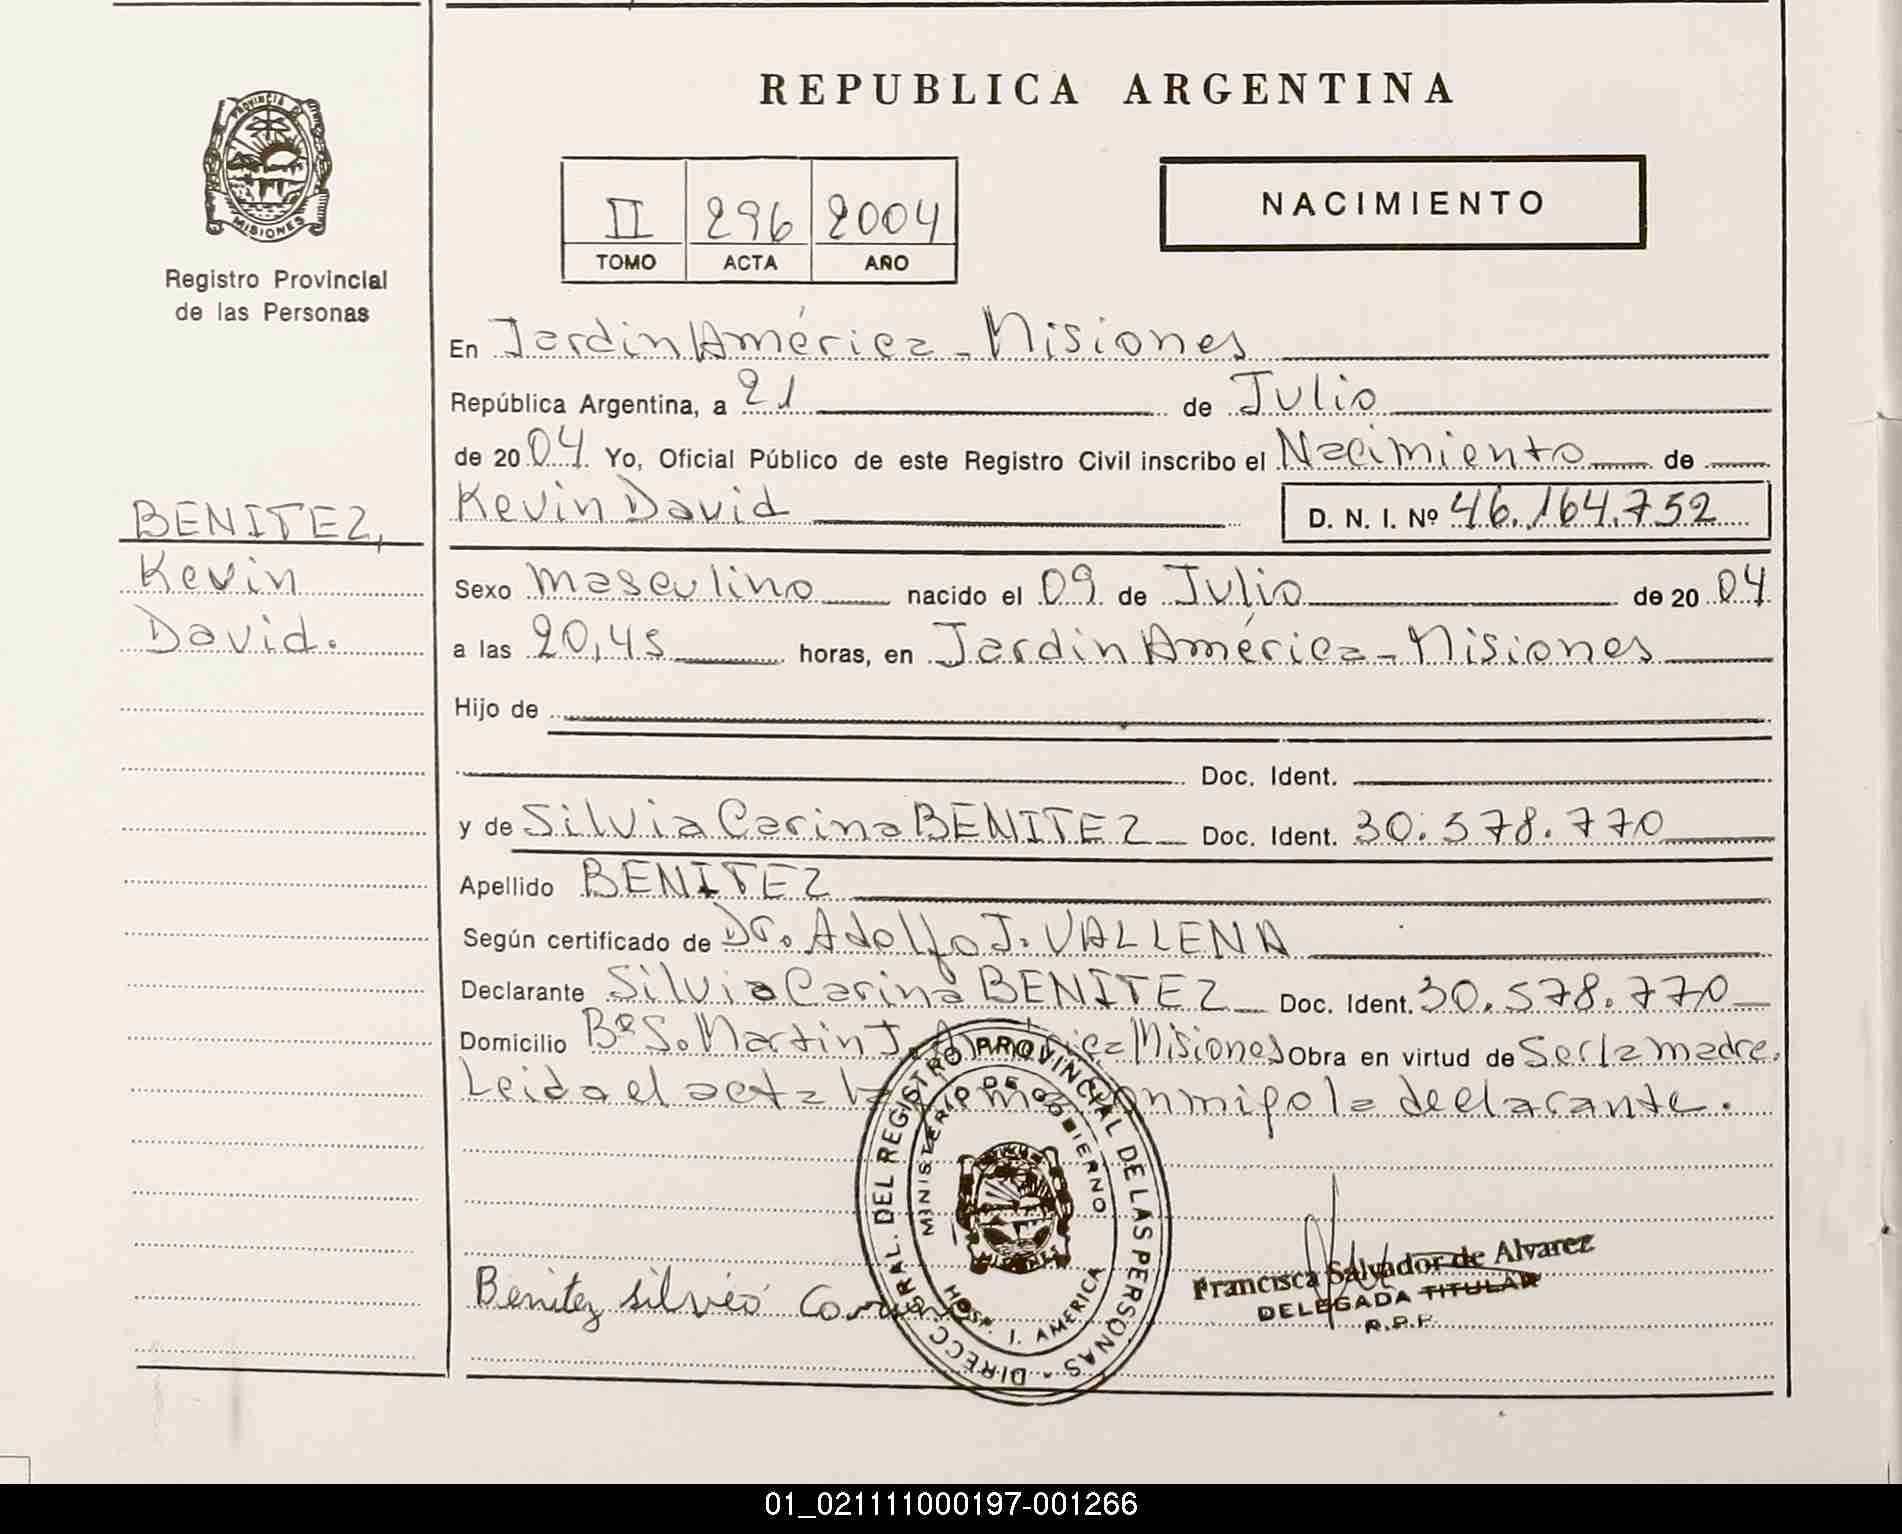 REPUBLICA ARGENTINA
PROVINCIA DE
MISIONES
Registro Provincial
de las Personas
II 296 2004
TOMO ACTA AÑO
NACIMIENTO
En Jardin América - Misiones
República Argentina, a 21 de Julio
de 2004 Yo, Oficial Público de este Registro Civil inscribo el Nacimiento de
Kevin David D. N. I. Nº 46.164.752
BENITEZ,
Kevin
David.
Sexo masculino nacido el 09 de Julio de 2004
a las 20,45 horas, en Jardin América - Misiones
Hijo de
Doc. Ident.
y de Silvia Carina BENITEZ Doc. Ident. 30.578.770
Apellido BENITEZ
Según certificado de Dr. Adolfo J. VALLENA
Declarante Silvia Carina BENITEZ Doc. Ident. 30.578.770
Domicilio Bº S. Martin J. América Misiones Obra en virtud de Ser la madre.
Leida el acta la firma conmigo la declarante.
DIRECC. GRAL. DEL REGISTRO PROVINCIAL DE LAS PERSONAS
MINISTERIO DE GOBIERNO
HOSP. J. AMERICA
Benitez Silvia
Francisca Salvador de Alvarez
DELEGADA TITULAR
R.P.P.
01_021111000197-001266